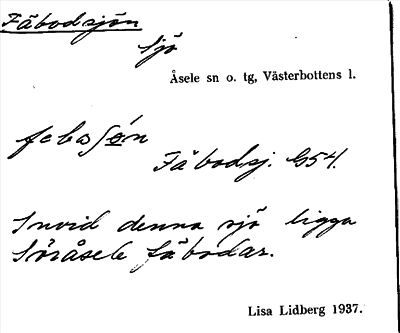 Fäbodsjön
Sjö
Åsele sn o. tg, Västerbottens l.
Fäbodsj. G54.
Invid denna sjö ligga
Söråsele fäbodar.
Lisa Lidberg 1937.